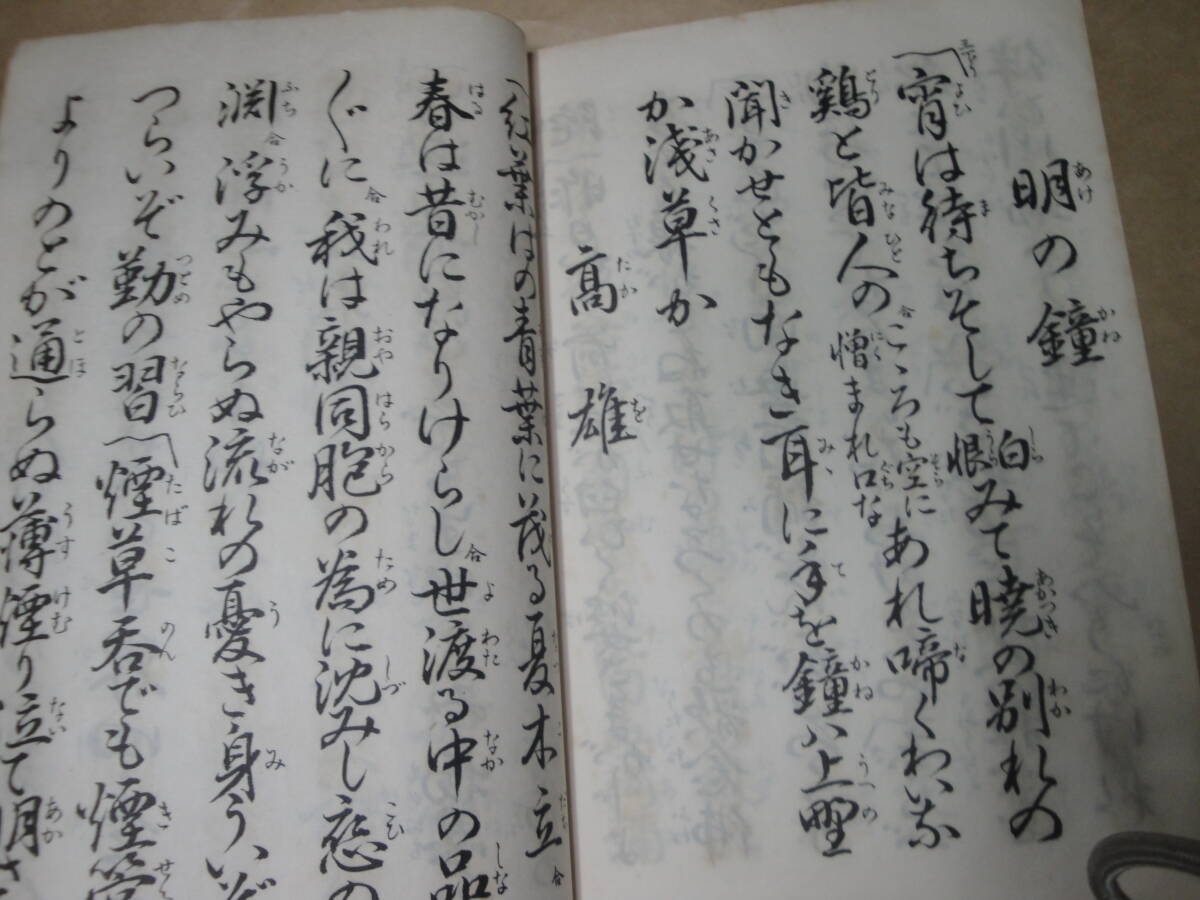 明の鐘
〽宵は待ちそして白恨みて暁の別れの
鶏と皆人のこころも空に憎まれ口なあれ啼くわいな
聞かせともなき耳に手を鐘ハ上野
か浅草か
高雄
〽紅葉はの青葉に茂る夏木立
春は昔になりけらし世渡る中の品
〲に我は親同胞の為に沈みし恋の
渕浮みもやらぬ流れの憂き身ういぞ
つらいぞ勤の習〽煙草呑でも煙管
よりのとが通らぬ薄煙り泣て明さ